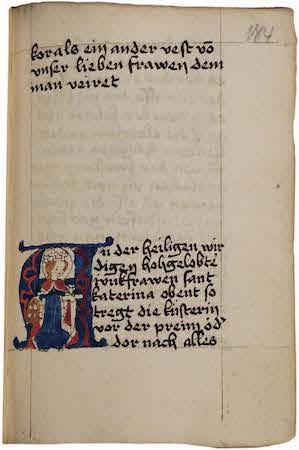 184
kor als ein ander vest vō
vnser lieben frawen dem
man veiret
An der heiligen wir
digen hohgelobte
iunkfrawen sant
katerina obent so
tregt die kusterin
vor der preim od'
dor nach alles